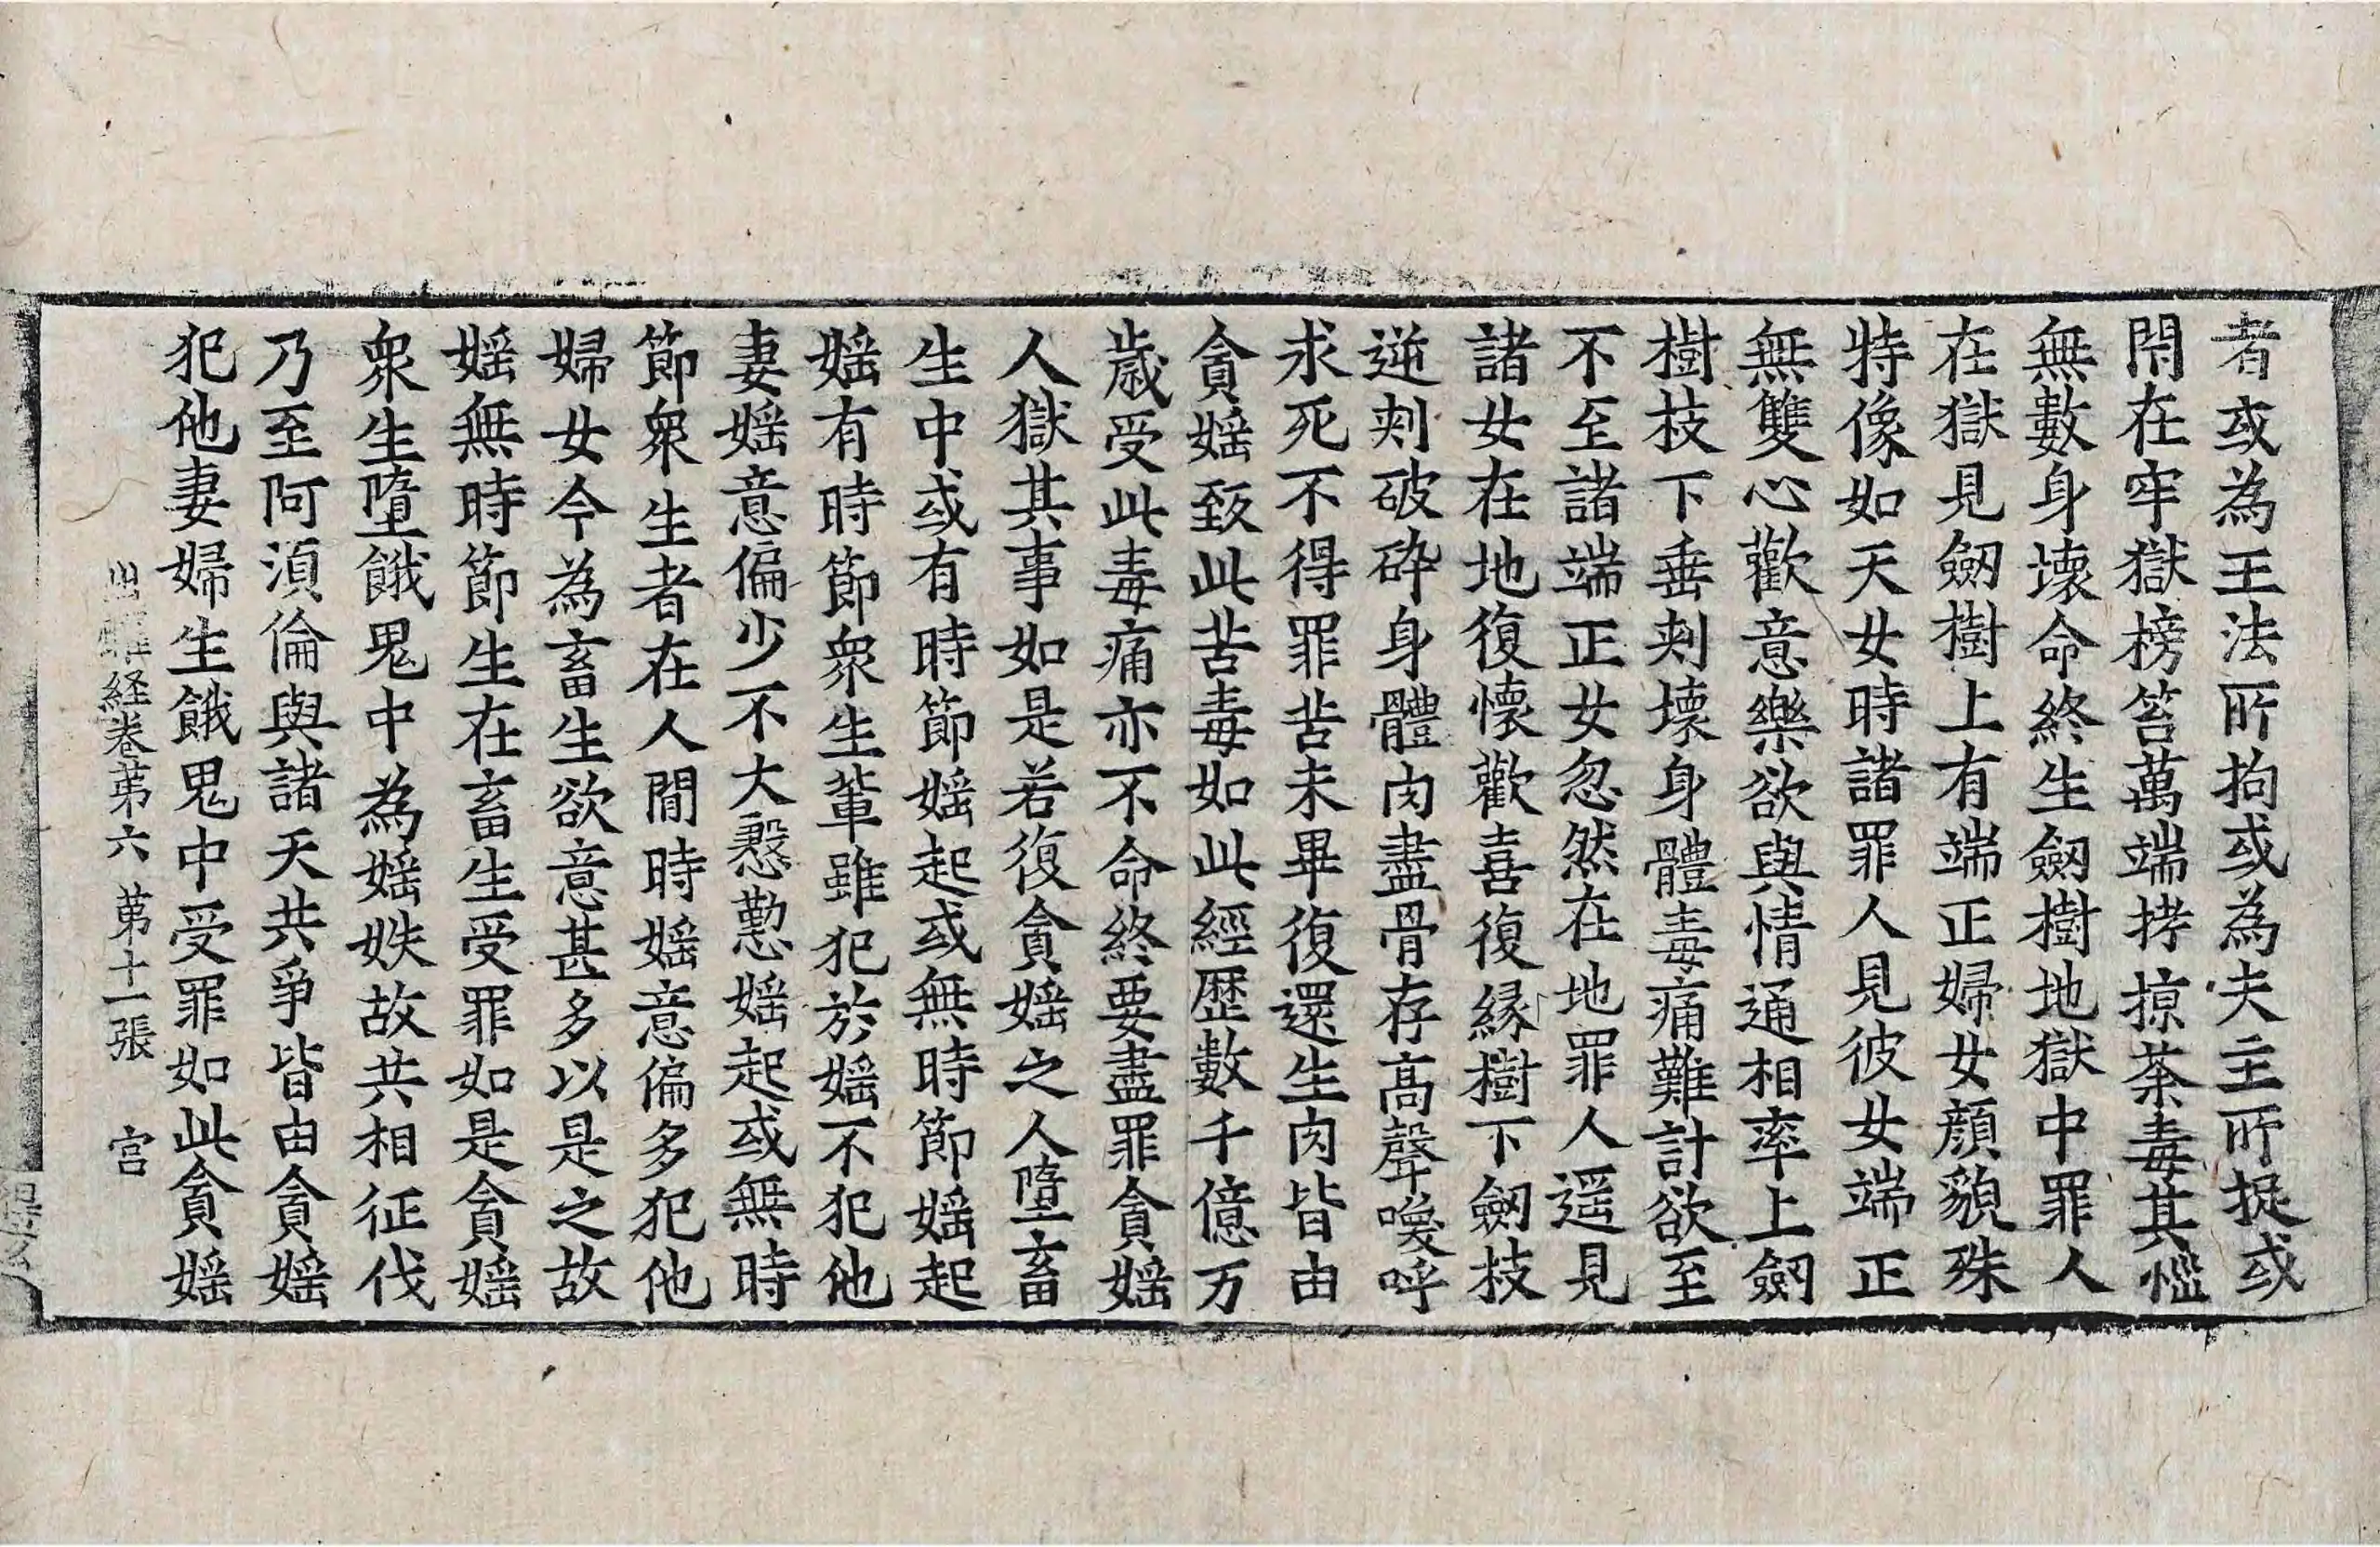 者或為王法所拘或為夫主所捉或
閇在牢獄榜笞萬端拷掠荼毒其惱
無數身壞命終生劒樹地獄中罪人
在獄見劒樹上有端正婦女顔貌殊
特像如天女時諸罪人見彼女端正
無雙心歡意樂欲與情通相率上劒
樹枝下垂刾壞身體毒痛難計欲至
不至諸端正女忽然在地罪人遥見
諸女在地復懷歡喜復縁樹下劒枝
逆刾破碎身體肉盡骨存高聲喚呼
求死不得罪苦未畢復還生肉皆由
貪婬致此苦毒如此經歷數千億万
歲受此毒痛亦不命終要盡罪貪婬
人獄其事如是若復貪婬之人墮畜
生中或有時節婬起或無時節婬起
婬有時節衆生軰雖犯於婬不犯他
妻婬意偏少不大慇懃婬起或無時
節衆生者在人間時婬意偏多犯他
婦女今為畜生欲意甚多以是之故
婬無時節生在畜生受罪如是貪婬
衆生墮餓鬼中為婬妷故共相征伐
乃至阿湏倫與諸天共爭皆由貪婬
犯他妻婦生餓鬼中受罪如此貪婬
出曜経卷苐六 苐十一張 宫